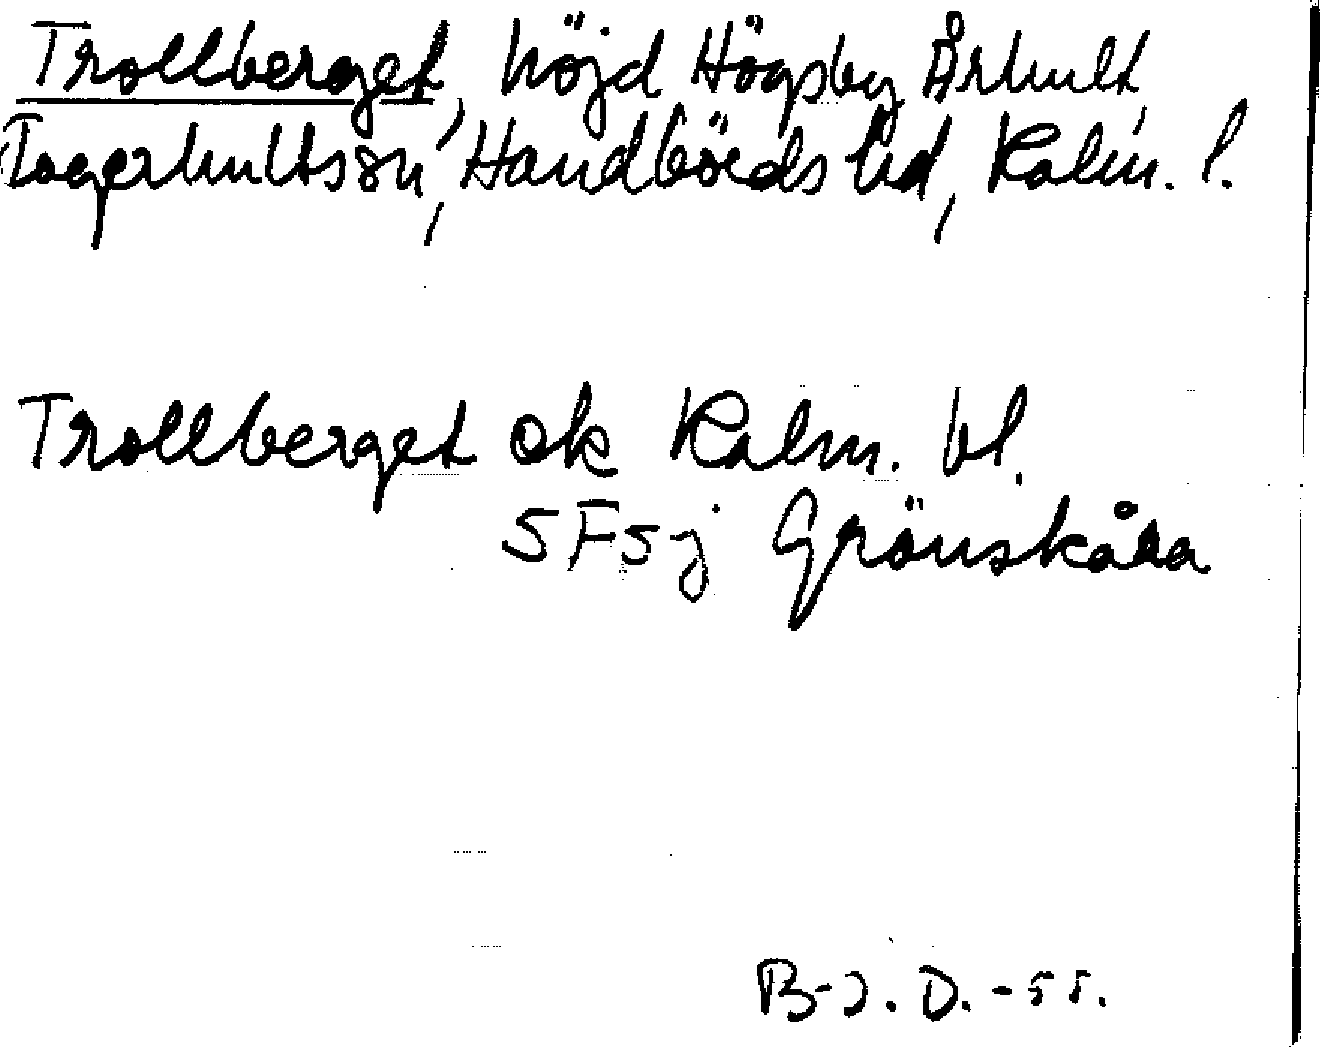 Trollberget, höjd Högsby Århult
Fagerhultssön, Handbörds hd, Kalm. l.
Trollberget ek Kalm. bl.
5F5j Grönskåra
B-J. D. -55.